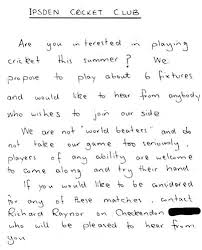 IPSDEN CRICKET CLUB
Are you interested in playing
cricket this summer? We
propose to play about 6 fixtures
and would like to hear from anybody
who wishes to join our side
We are not "world beaters" and do
not take our game too seriously,
players of any ability are welcome
to come along and try their hand
If you would like to be considered
for any of these matches, contact
Richard Raynor on Checkendon
who will be pleased to hear from
you